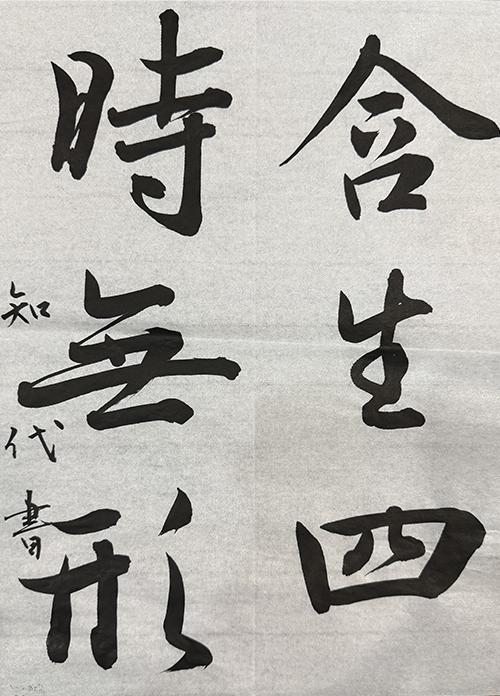 含生四
時無形
知代書